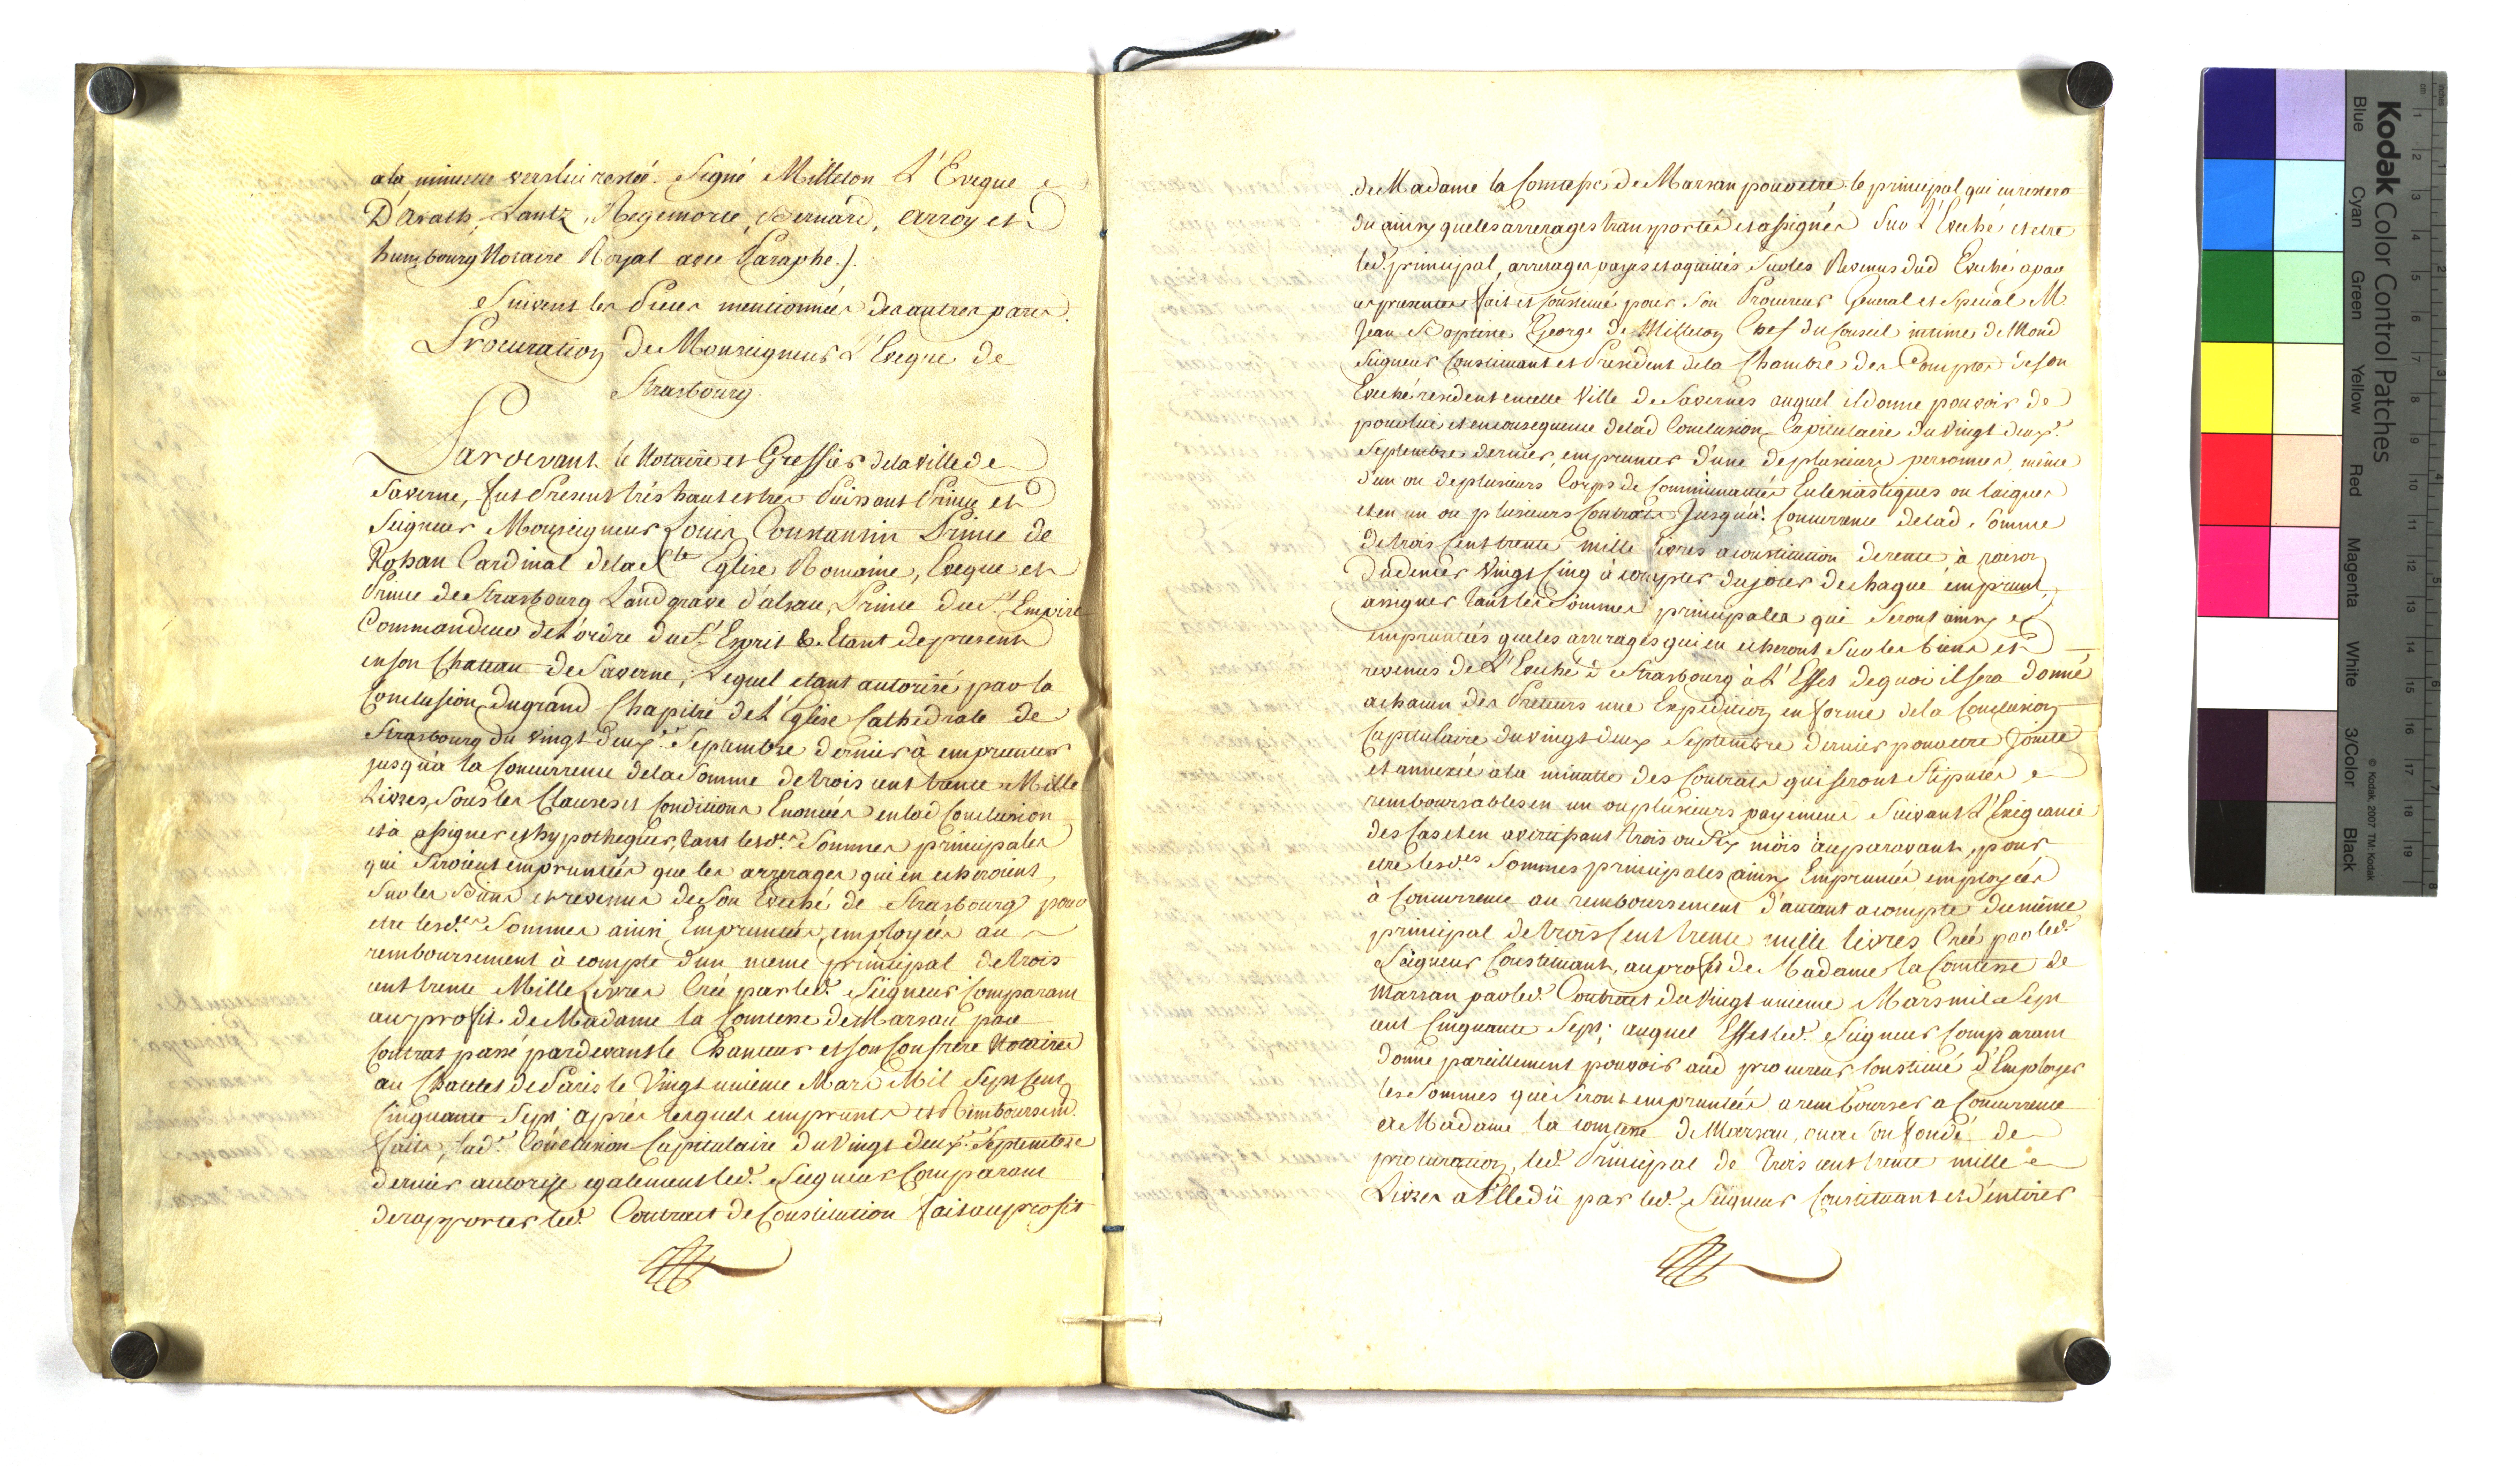 a la minutte vers lui restée. Signé Milleton L'Eveque
D'arath, Lantz, Regemorte, Bernard, arroy et
humbourg Notaire Royal avec Paraphe.).
Suivent les Pieces mentionnées des autres parts.
Procuration de Monseigneur L'Eveque de
Strasbourg.
Pardevant le Notaire et Greffier de la ville de
Saverne, fut Present trés haut et tres Puissant Prince et
Seigneur Monseigneur Louis Constantin Prince de
Rohan Cardinal de la Ste Eglise Romaine, Eveque et
Prince de Strasbourg Landgrave d'alsace, Prince du St. Empire
Commandeur de L'ordre du St. Esprit &. Etant de present
en son Chateau de Saverne; Lequel etant autorisé par la
Conclusion du grand Chapitre de L'Eglise Cathedrale de
Strasbourg du vingt deux.e Septembre dernier à emprunter
jusqu'a la Concurrence de la Somme de trois cent trente Mille
Livres, Sous les Clauses et Conditions Enoncées en lad Conclusion
et à assigner et hypothequer, tant lesd.es Sommes principales
qui Seroient empruntées que les arrerages qui en echeroient,
Sur les Biens et revenus de Son Eveché de Strasbourg pour
etre lesd.es Sommes ainsi Empruntées, employées au
remboursement à compte d'un meme principal de trois
cent trente Mille Livres Créé par led. Seigneur Comparant
au profit de Madame la Comtesse de Marsan par
Contrat passé pardevant le Chanteur et son Confrere Notaires
au Chatelet de Paris le Vingt unieme Mars Mil Sept Cent
Cinquante Sept; après lesquels emprunts et Remboursem.
faits, lad.e Conclusion Capitulaire du Vingt deux.e Septembre
dernier autorise egalement led. Seigneur Comparant
de rapporter led. Contract de Constitution fait au profit
de Madame la Comtesse de Marsan pour etre le principal qui en restera
du ainsy que les arrerages transportés et assignés Sur L'Eveché et etre
led. principal, arrerages payés et aquittés Sur les Revenus dud Eveché a par
ces presentes fait et Constitué pour Son Procureur General et Special M
Jean Baptiste George de Milleton Chef du Conseil intime de Mond
Seigneur Constituant et President de la Chambre des Comptes de son
Eveché resident en cette Ville de Savernes auquel il donne pouvoir de
pour lui et en consequence de lad Conclusion Capitulaire du Vingt deux.e
Septembre dernier, emprunter d'une de plusieurs personnes même
d'un ou de plusieurs Corps de Communautés Eclesiastiques ou laiques
et en un ou plusieurs Contrats Jusqu'à Concurrence de lad. Somme
de trois Cent trente mille livres a constitution de rente à raison
du denier Vingt Cinq à compter du jour de chaque emprunt,
assigner tant les Sommes principales qui Seront ainsy
empruntées que les arrerages qui en echeront Sur les biens et
revenus de L'Eveché de Strasbourg à L'Effet de quoi il sera donné
a chacun des Preteurs une Expedition en forme de la Conclusion
Capitulaire du Vingt deux Septembre dernier pour etre Jointe
et annexée a la minutte des Contrats qui Seront Stipulés
remboursables en un ou plusieurs payemens Suivant L'Exigeance
des Cas et en avertissant trois ou Six mois auparavant, pour
etre lesd.es Sommes principales ainsy Empruntés, employées
à Concurrence au remboursement d'autant a compte du même
principal de trois Cent trente mille livres Créé par led.
Seigneur Constituant, au profit de Madame la Comtesse de
Marsan par led. Contract du Vingt unieme Mars mil Sept
cent Cinquante Sept; auquel Effet led. Seigneur Comparant
donne pareillement pouvoir aud procureur Constitué d'Employer
les Sommes qui Seront empruntées a rembourser a Concurrence
a Madame la comtesse de Marsan, ou a Son fondé de
procuration, led. Principal de trois cent trente mille
Livres a Elle dû par led. Seigneur Constituant et d'entirer